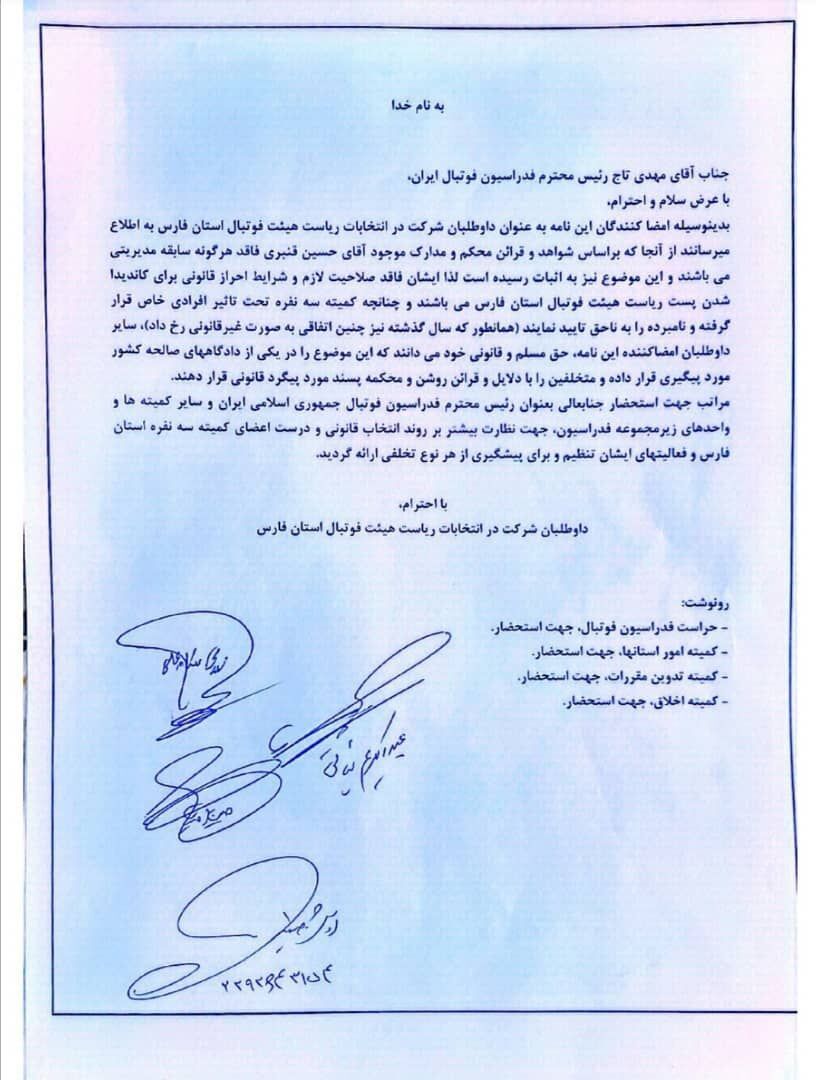 به نام خدا
جناب آقای مهدی تاج رئیس محترم فدراسیون فوتبال ایران،
با عرض سلام و احترام،
بدینوسیله امضا کنندگان این نامه به عنوان داوطلبان شرکت در انتخابات ریاست هیئت فوتبال استان فارس به اطلاع
میرسانند از آنجا که براساس شواهد و قرائن محکم و مدارک موجود آقای حسین قنبری فاقد هرگونه سابقه مدیریتی
می باشند و این موضوع نیز به اثبات رسیده است لذا ایشان فاقد صلاحیت لازم و شرایط احراز قانونی برای کاندیدا
شدن پست ریاست هیئت فوتبال استان فارس می باشند و چنانچه کمیته سه نفره تحت تاثیر افرادی خاص قرار
گرفته و نامبرده را به ناحق تایید نمایند (همانطور که سال گذشته نیز چنین اتفاقی به صورت غیرقانونی رخ داد)، سایر
داوطلبان امضاکننده این نامه، حق مسلم و قانونی خود می دانند که این موضوع را در یکی از دادگاههای صالحه کشور
مورد پیگیری قرار داده و متخلفین را با دلایل و قرائن روشن و محکمه پسند مورد پیگرد قانونی قرار دهند.
مراتب جهت استحضار جنابعالی بعنوان رئیس محترم فدراسیون فوتبال جمهوری اسلامی ایران و سایر کمیته ها و
واحدهای زیرمجموعه فدراسیون، جهت نظارت بیشتر بر روند انتخاب قانونی و درست اعضای کمیته سه نفره استان
فارس و فعالیتهای ایشان تنظیم و برای پیشگیری از هر نوع تخلفی ارائه گردید.
با احترام،
داوطلبان شرکت در انتخابات ریاست هیئت فوتبال استان فارس
رونوشت:
- حراست فدراسیون فوتبال، جهت استحضار.
- کمیته امور استانها، جهت استحضار.
- کمیته تدوین مقررات، جهت استحضار.
- کمیته اخلاق، جهت استحضار.